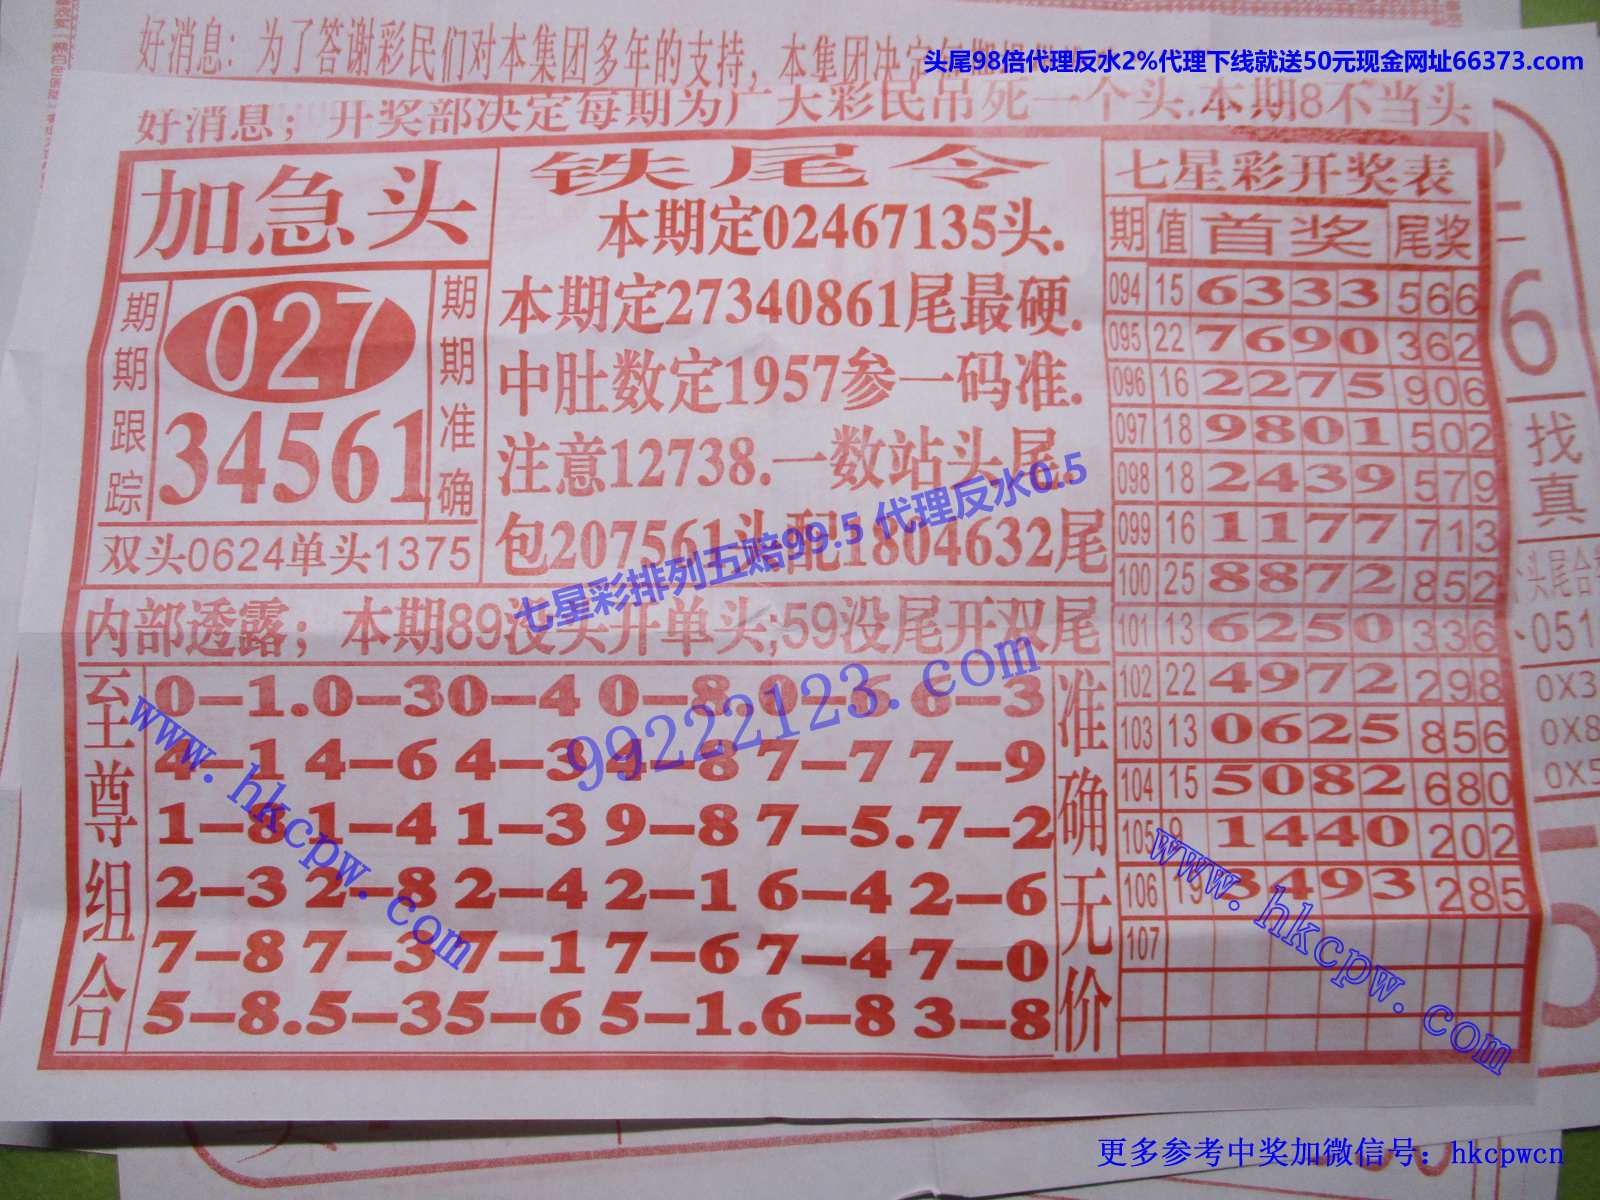 好消息：为了答谢彩民们对本集团多年的支持，本集团决定每期
头尾98倍代理反水2%代理下线就送50元现金网址66373.com
好消息；开奖部决定每期为广大彩民吊死一个头.本期8不当头
加急头
期期跟踪
027
34561
期期准确
双头0624单头1375
铁尾令
本期定02467135头.
本期定27340861尾最硬.
中肚数定1957参一码准.
注意12738.一数站头尾
包207561头配1804632尾
七星彩排列五赔99.5 代理反水0.5
99222123.com
内部透露；本期89没头开单头;59没尾开双尾
至尊组合
0–1.0–30–4 0–8.0–6 6–3
4–1 4–6 4–3 4–8 7–7 7–9
1–8 1–4 1–3 9–8 7–5.7–2
2–3 2–8 2–4 2–1 6–4 2–6
7–8 7–3 7–1 7–6 7–4 7–0
5–8.5–35–6 5–1.6–8 3–8
准确无价
www.hkcpw.com
七星彩开奖表
期 值 首奖 尾奖
094 15 6333 566
095 22 7690 362
096 16 2275 906
097 18 9801 502
098 18 2439 579
099 16 1177 713
100 25 8872 852
101 13 6250 336
102 22 4972 298
103 13 0625 856
104 15 5082 680
105 9 1440 202
106 19 3493 285
107
www.hkcpw.com
6
找真
头尾合
051
0X3
0X8
0X5
更多参考中奖加微信号：hkcpwcn